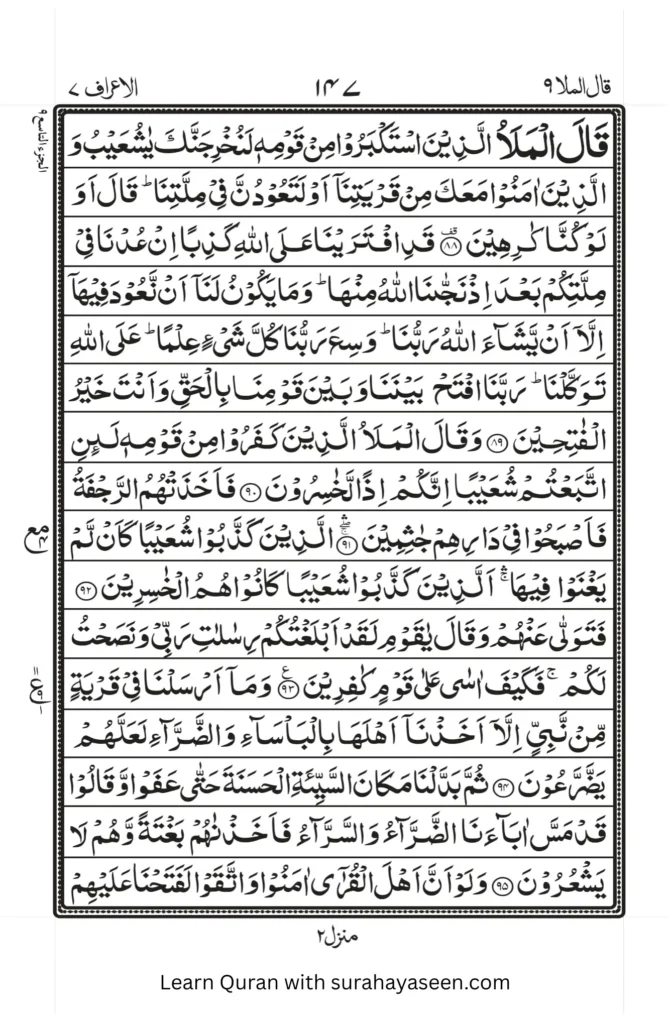 قال الملا ۹
۱۴۷
الاعراف ۷
الجزء التاسع ۹
قَالَ الْمَلَاُ الَّذِیْنَ اسْتَكْبَرُوْا مِنْ قَوْمِهٖ لَنُخْرِجَنَّكَ یٰشُعَیْبُ وَ
الَّذِیْنَ اٰمَنُوْا مَعَكَ مِنْ قَرْیَتِنَاۤ اَوْ لَتَعُوْدُنَّ فِیْ مِلَّتِنَا ؕ قَالَ اَوَ
لَوْ كُنَّا كٰرِهِیْنَ ۟ۚ ۸۸ قَدِ افْتَرَیْنَا عَلَی اللّٰهِ كَذِبًا اِنْ عُدْنَا فِیْ
مِلَّتِكُمْ بَعْدَ اِذْ نَجّٰىنَا اللّٰهُ مِنْهَا ؕ وَمَا یَكُوْنُ لَنَاۤ اَنْ نَّعُوْدَ فِیْهَاۤ
اِلَّاۤ اَنْ یَّشَآءَ اللّٰهُ رَبُّنَا ؕ وَسِعَ رَبُّنَا كُلَّ شَیْءٍ عِلْمًا ؕ عَلَی اللّٰهِ
تَوَكَّلْنَا ؕ رَبَّنَا افْتَحْ بَیْنَنَا وَبَیْنَ قَوْمِنَا بِالْحَقِّ وَاَنْتَ خَیْرُ
الْفٰتِحِیْنَ ۸۹ وَقَالَ الْمَلَاُ الَّذِیْنَ كَفَرُوْا مِنْ قَوْمِهٖ لَىِٕنِ
اتَّبَعْتُمْ شُعَیْبًا اِنَّكُمْ اِذًا لَّخٰسِرُوْنَ ۹۰ فَاَخَذَتْهُمُ الرَّجْفَةُ
فَاَصْبَحُوْا فِیْ دَارِهِمْ جٰثِمِیْنَ ۹۱ الَّذِیْنَ كَذَّبُوْا شُعَیْبًا كَاَنْ لَّمْ
یَغْنَوْا فِیْهَا ۛۚ اَلَّذِیْنَ كَذَّبُوْا شُعَیْبًا كَانُوْا هُمُ الْخٰسِرِیْنَ ۹۲
فَتَوَلّٰی عَنْهُمْ وَقَالَ یٰقَوْمِ لَقَدْ اَبْلَغْتُكُمْ رِسٰلٰتِ رَبِّیْ وَنَصَحْتُ
لَكُمْ ۚ فَكَیْفَ اٰسٰی عَلٰی قَوْمٍ كٰفِرِیْنَ ۹۳ وَمَاۤ اَرْسَلْنَا فِیْ قَرْیَةٍ
مِّنْ نَّبِیٍّ اِلَّاۤ اَخَذْنَاۤ اَهْلَهَا بِالْبَاْسَآءِ وَالضَّرَّآءِ لَعَلَّهُمْ
یَضَّرَّعُوْنَ ۹۴ ثُمَّ بَدَّلْنَا مَكَانَ السَّیِّئَةِ الْحَسَنَةَ حَتّٰی عَفَوْا وَّقَالُوْا
قَدْ مَسَّ اٰبَآءَنَا الضَّرَّآءُ وَالسَّرَّآءُ فَاَخَذْنٰهُمْ بَغْتَةً وَّهُمْ لَا
یَشْعُرُوْنَ ۹۵ وَلَوْ اَنَّ اَهْلَ الْقُرٰۤی اٰمَنُوْا وَاتَّقَوْا لَفَتَحْنَا عَلَیْهِمْ
منزل ۲
Learn Quran with surahayaseen.com